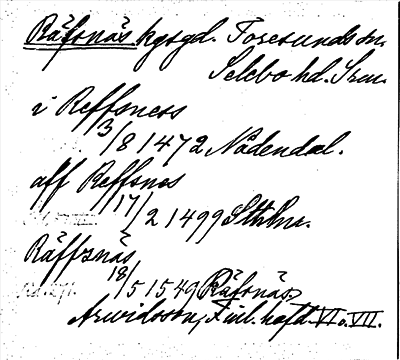 Räfsnäs kgsgd. Toresunds sn.
Selebo hd. Srm.
i Reffsness
3/8 1472 Nådendal.
aff Reffsnes
17/2 1499 Sthlm.
Räffznäs
18/5 1549 Räfsnäs.
Arwidsson, Finl. häfd. VI o. VII.